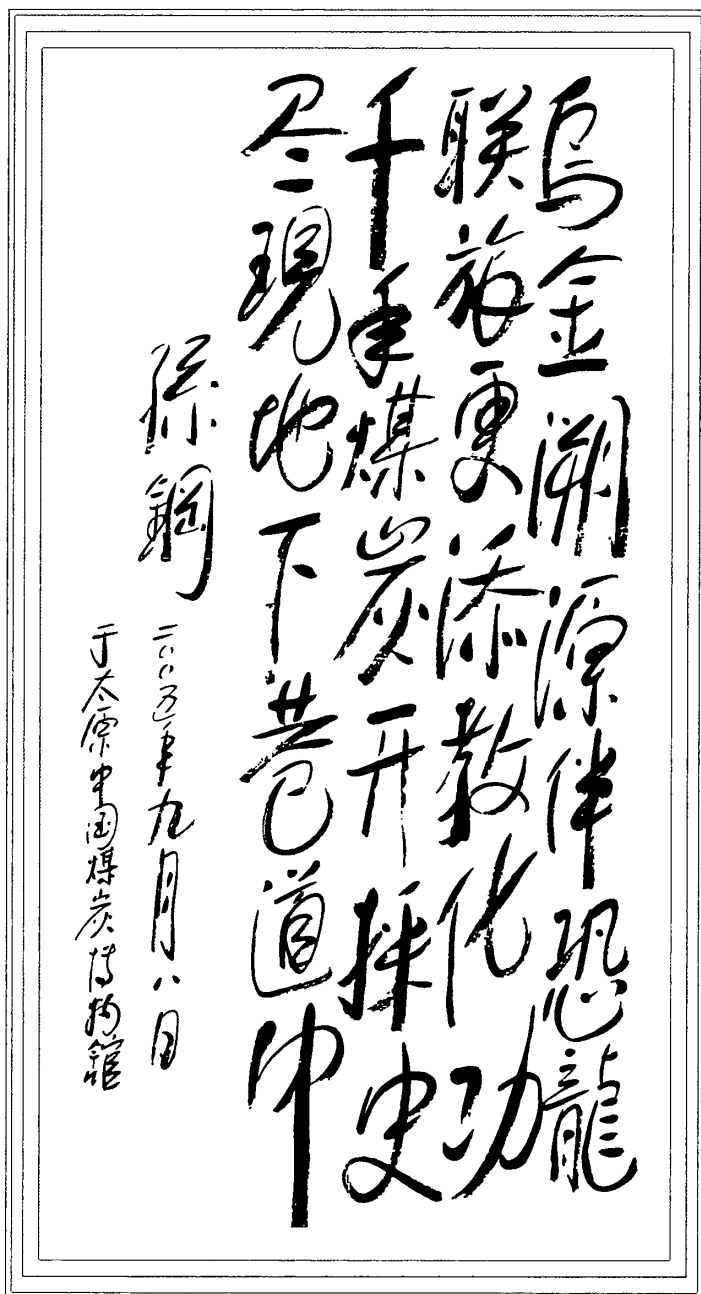 乌金溯源伴恐龍
联旅更添教化功
千年煤炭开採史
尽現地下巷道中
孫鋼
二〇〇五年九月八日
于太原中国煤炭博物館